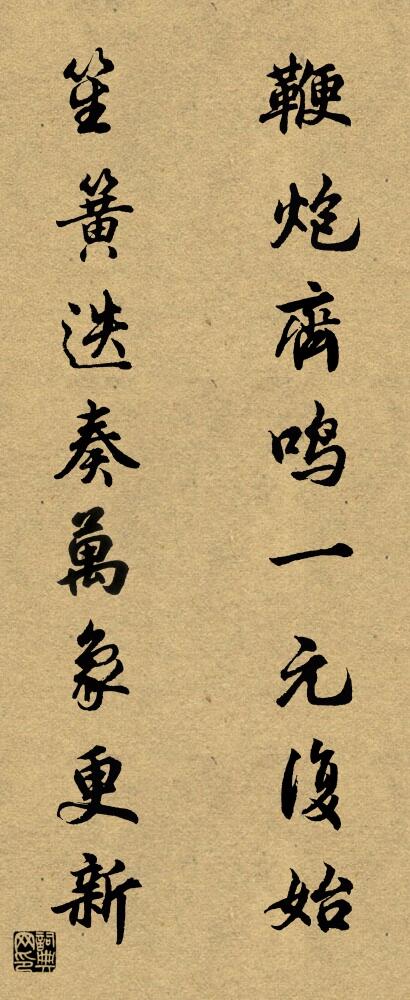 鞭炮齊鸣一元復始
笙簧迭奏萬象更新
詞典网印